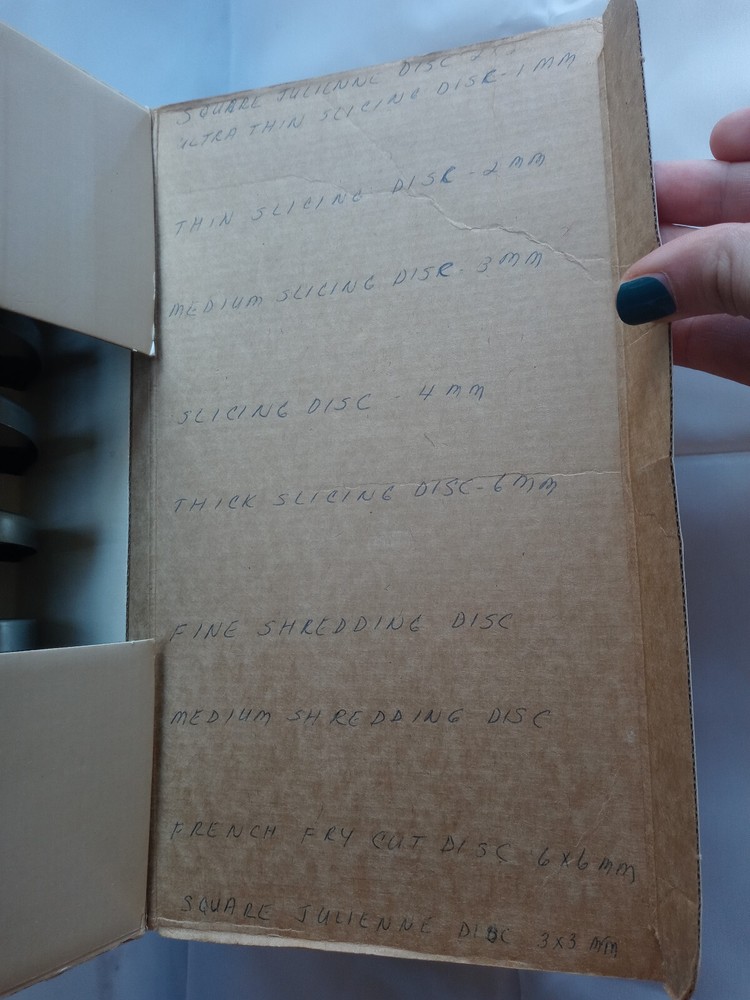 SQUARE JULIENNE DISC
ULTRA THIN SLICING DISC-1MM
THIN SLICING DISC-2MM
MEDIUM SLICING DISC-3MM
SLICING DISC - 4MM
THICK SLICING DISC-6MM
FINE SHREDDING DISC
MEDIUM SHREDDING DISC
FRENCH FRY CUT DISC 6X6MM
SQUARE JULIENNE DISC 3X3MM